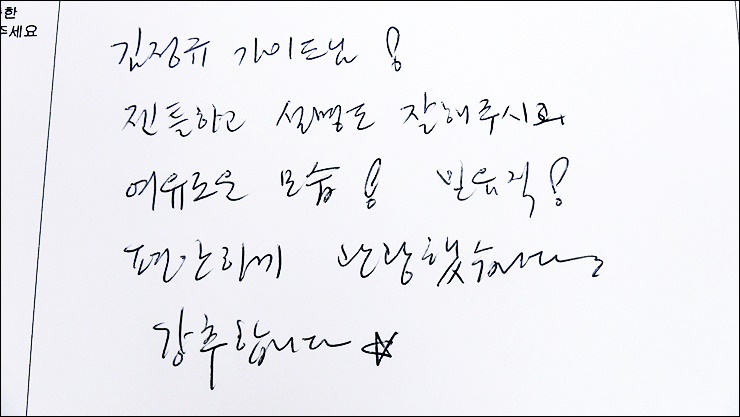 한
주세요
김정규 가이드님!
젠틀하고 설명도 잘해주시고
여유로운 모습! 믿음직!
편안하게 관광했습니다.
강추합니다